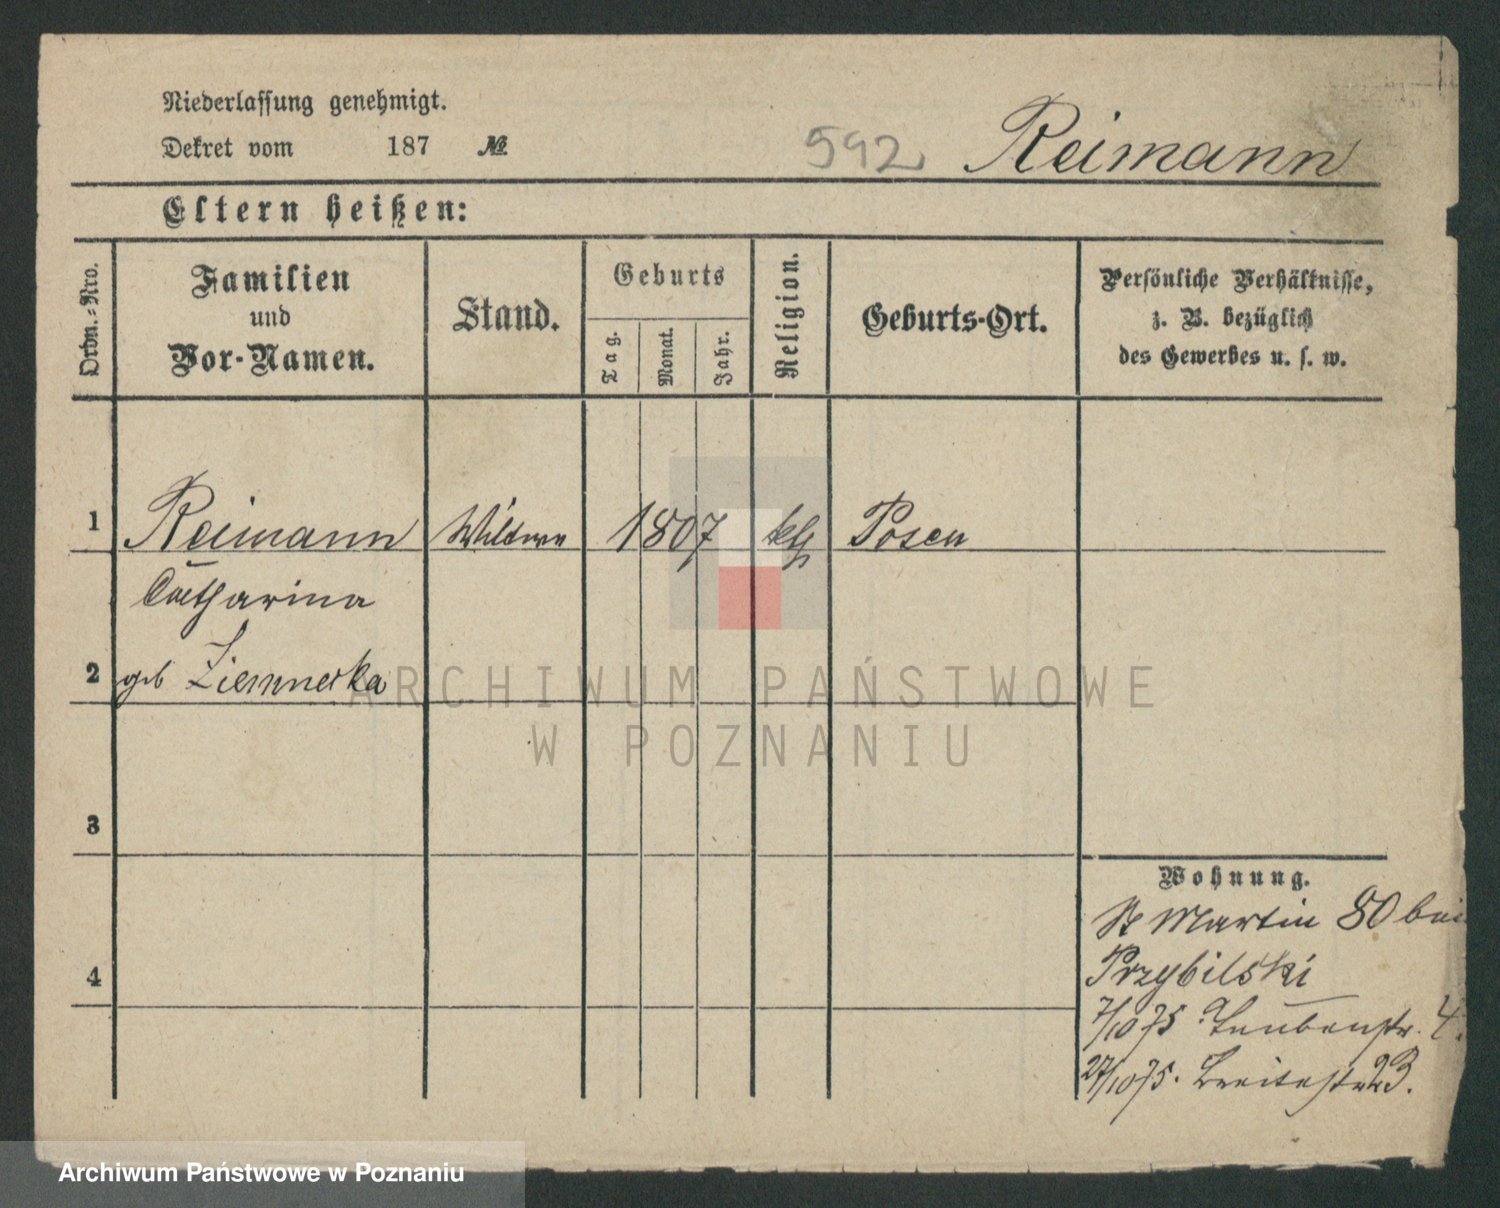 Niederlassung genehmigt.
Dekret vom 187 №
592 Reimann
Eltern heißen:
Ordn.-Nro.
Familien
und
Vor-Namen.
Stand.
Geburts
Tag.
Monat.
Jahr.
Religion.
Geburts-Ort.
Persönliche Verhältnisse,
z. B. bezüglich
des Gewerbes u. s. w.
1 Reimann Wittwe 1807 kth Posen
Catharina
2 geb
3
4
Wohnung.
St Martin 80 bei
Przybilski
7/10 75 4.
27/10 75. Breitestr 23.
ARCHIWUM PAŃSTWOWE
W POZNANIU
Archiwum Państwowe w Poznaniu